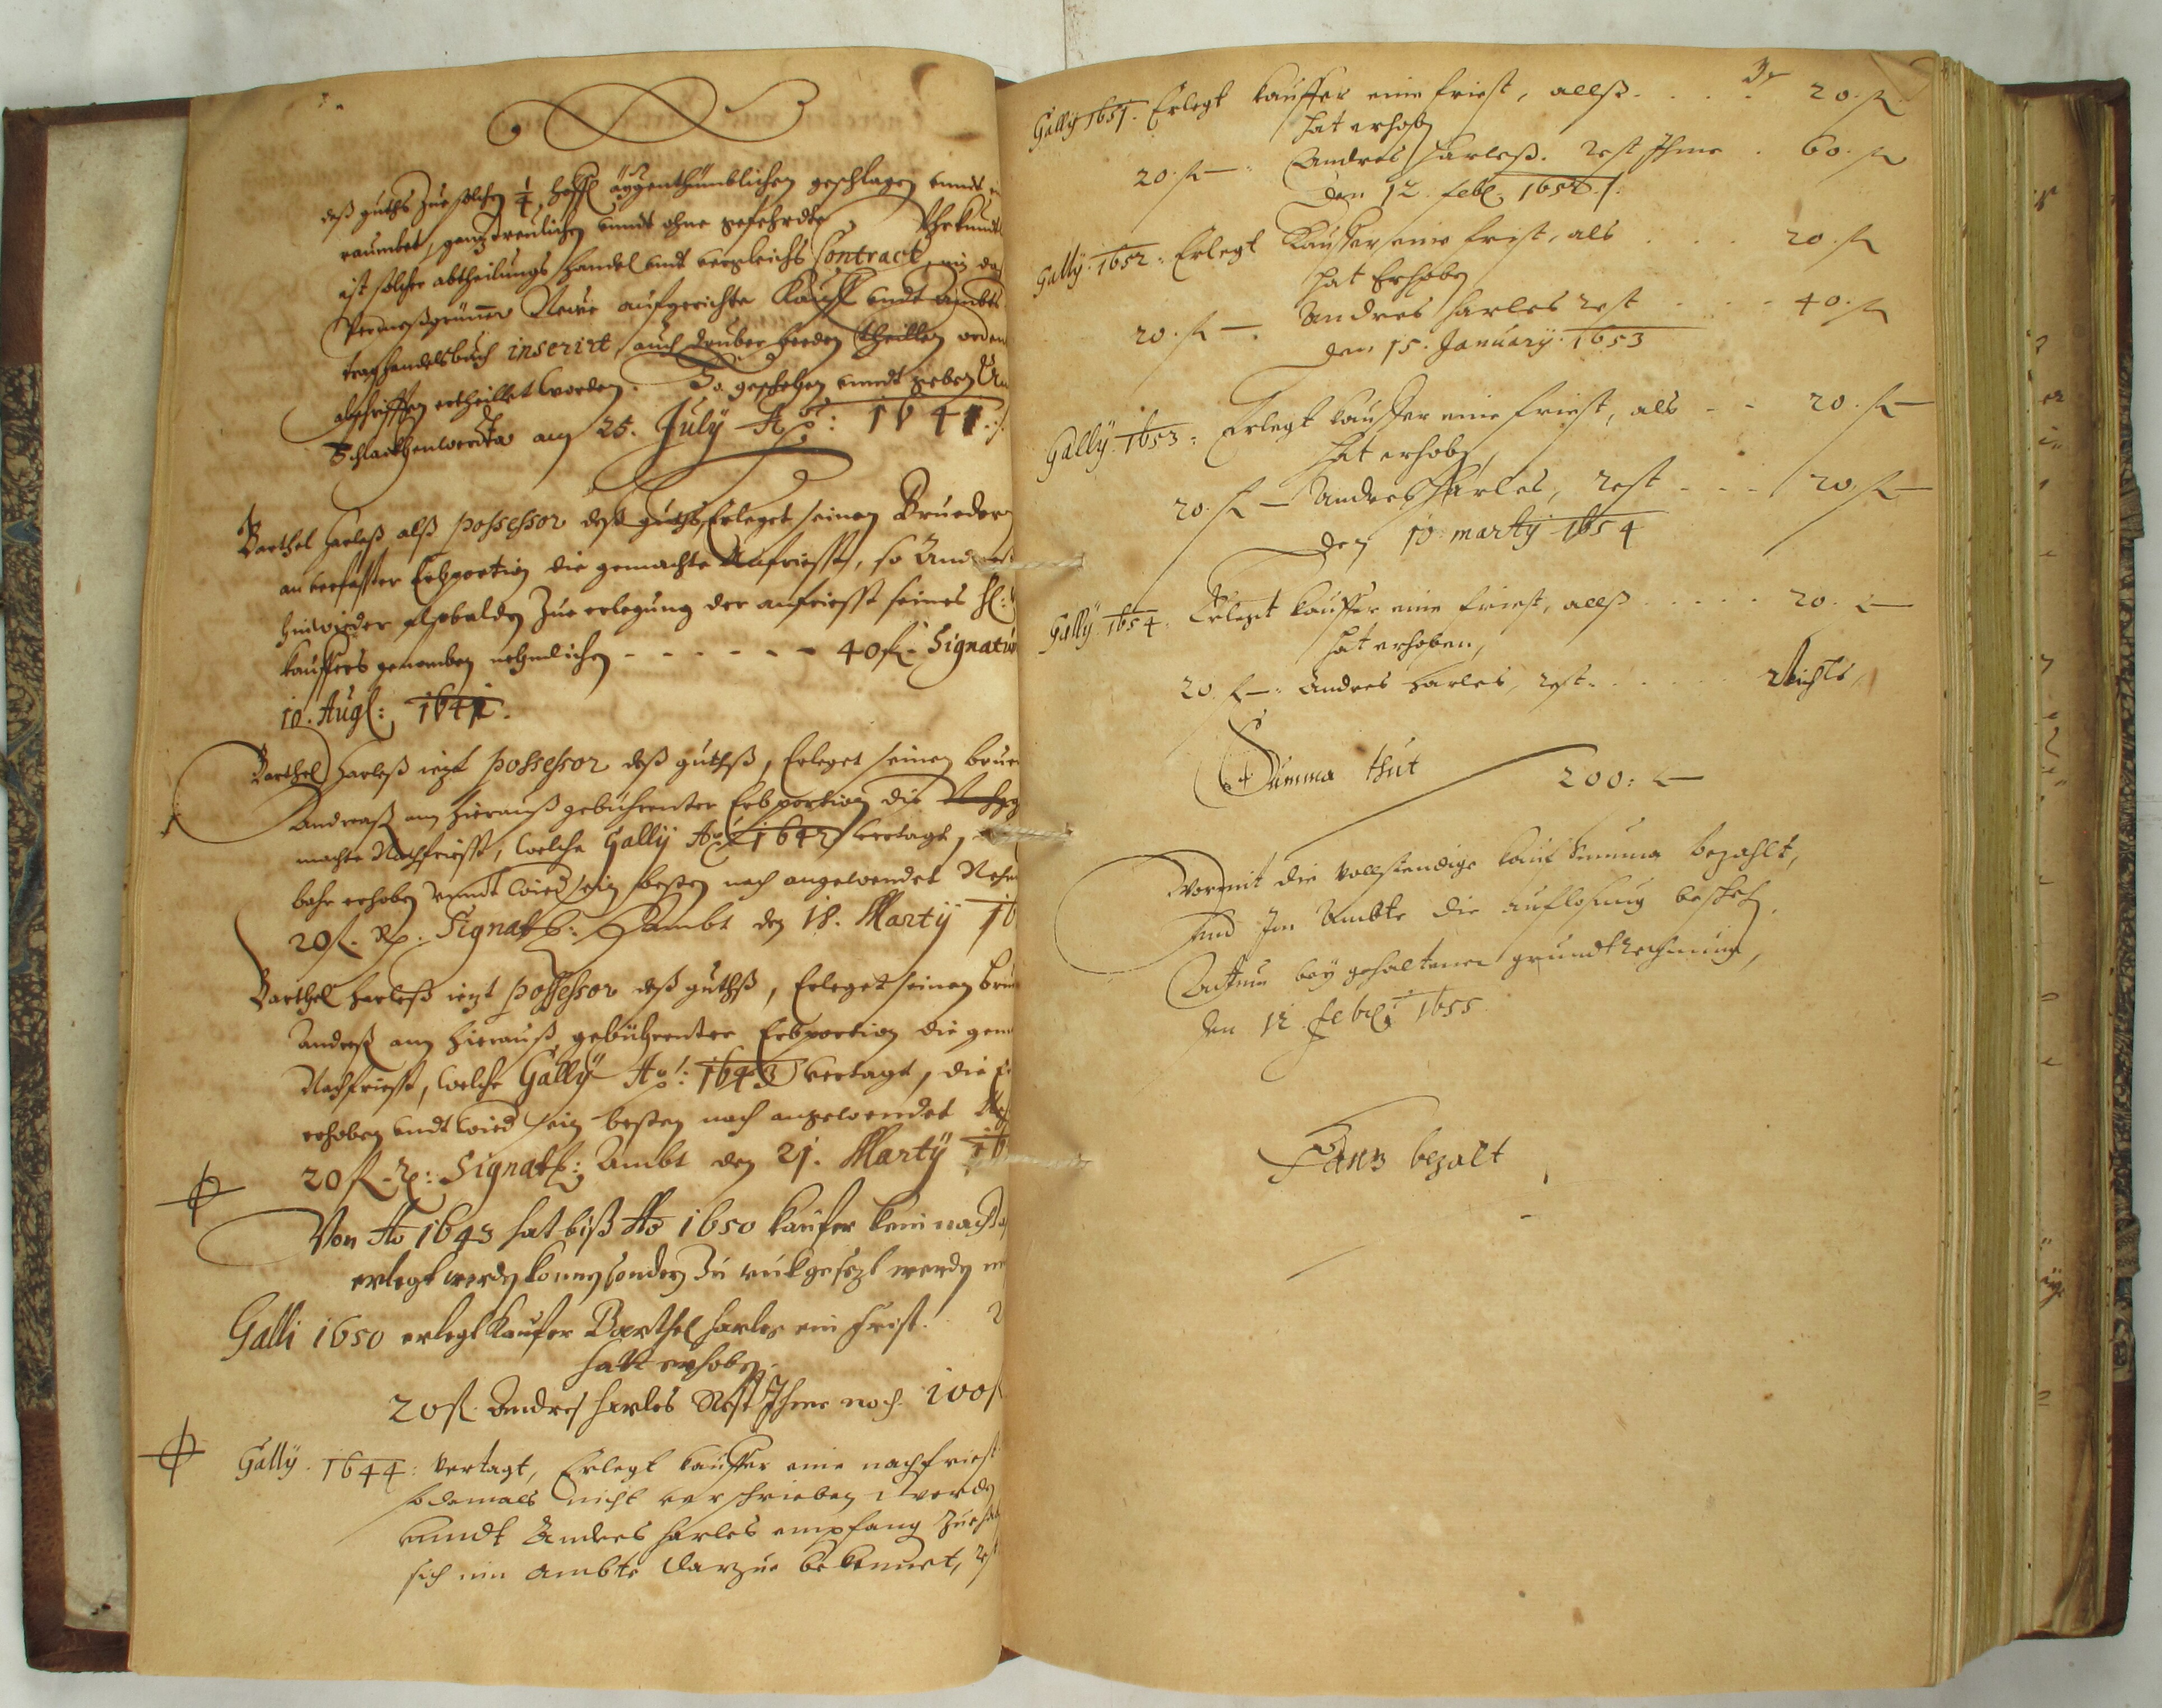 deß guths Zue solchen 1/4 Hoff aygenthümblichen geschlagen vnndt
raumbet, ganz treulichen vnndt ohne gefehrdte
ist solcher abtheilungs Handel vndt vergleichs Contract, in das
Neue aufgerichte Kauff vndt Ambts
traghandelsbuch inserirt, auch drüber beeden theillen
abschrifften ertheillet worden. So geschehen vnndt geben
Schlackhenwerdta am 25. July Ao: 1641.
Barthel Harleß alß possessor deß guths, Erleget seinen Bruedern
an Erbportion die gemachte, so
hinwieder alßbalden Zue erlegung der anfriesst seines
kauffers genomben nehmlichen - - - - - - 40 fl. Signatum
10. Aug: 1641.
Barthel Harleß iezt possessor deß guthß, Erleget seinen brue
Andreaß am hierauß gebührenter Erbportion die
machte Nachfriesst, welche Gally Ao: 1642 vertagt,
bahr erhoben vnndt wird sein besten nach angewendet
20 fl. Rh: Signat: Ambt den 18. Marty 16
Barthel Harleß iezt possessor deß guthß, Erleget seinen bru
Andreß am hierauß gebührenter Erbportion die gem
Nachfriesst, welche Gally Ao: 1643 vertagt, die
erhoben vndt wird sein besten nach angewendet
20 fl. Rh: Signat: Ambt den 21. Marty 16
Von Ao 1643 hat biß Ao 1650 kaufer kein nach
erlegt werden konnen sondern Zu rückgesezt werden
Galli 1650 erlegt Kaufer Barthel Harles ein frist. 2
hatt erhoben
20 fl. Andres Harles Rest Ihme noch. 100 f
Gally. 1644: vertagt, Erlegt kauffer eine nachfriest
so damals nicht verschrieben worden
vnndt Andres Harles empfang zue
sich im Ambte darzue bekennet,
Gally 1651. Erlegt kauffer eine friest, allß. . . . 20. fl
hat erhoben
20. fl — Andres Harleß. Rest Ihme . 60. fl
den 12. feb: 1652.
Gally. 1652: Erlegt Kauffer eine frist, als . . . 20. fl
hat Erhoben
20. fl — Andres Harles Rest . . . 40. fl
den 15. January. 1653
Gally. 1653: Erlegt kauffer eine friest, als - - 20. fl —
hat erhoben,
20. fl — Andres Harles, Rest - - - 20. fl —
den 10 marty 1654
Gally. 1654. Erlegt kauffer eine friest, allß . . . . . 20. fl —
hat erhoben,
20. fl —: Andres Harles, Rest. . . . . . Nichts,
Summa thut 200: fl —
Wormit die vollstendige kauf Summa bezahlt,
und Im Ambte die auflosung besche
Actum bey gehaltener grundtRechnung,
den 12. feb: 1655
Ganz bezalt